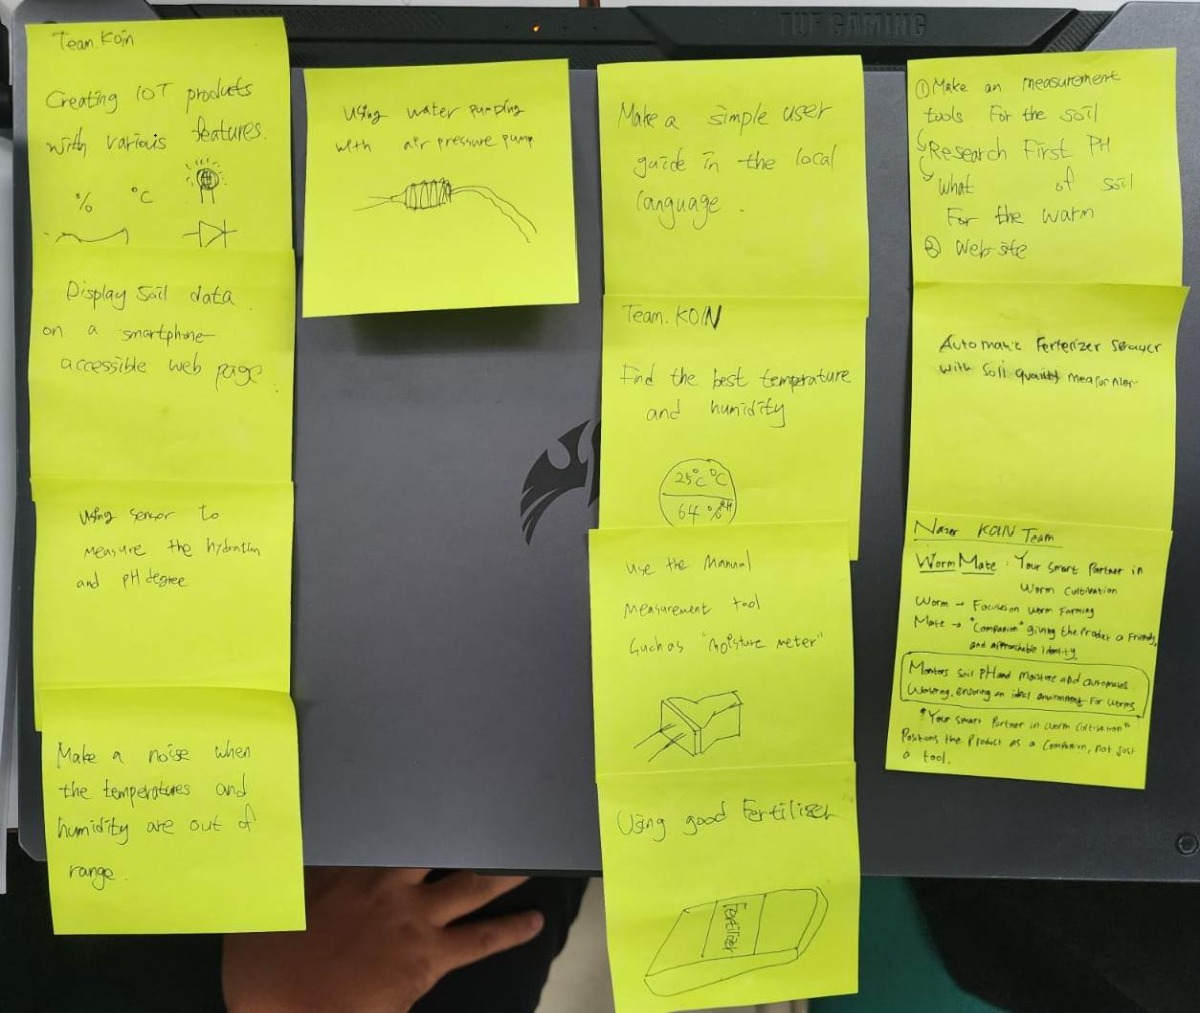 TUF GAMING
Team.Koin
Creating IOT products
with various features.
% °C
Display Soil data
on a smartphone
accessible web page
Using sensor to
measure the hydration
and pH degree
Make a noise when
the temperatures and
humidity are out of
range.
Using water pumping
with air pressure pump
Make a simple user
guide in the local
language.
Team.KOIN
Find the best temprature
and humidity
25°C °C
64 %RH
Use the Manual
measurement tool
Such as "moisture meter"
Using good Fertiliser
Fertilizer
① Make an measurement
tools For the soil
Research First PH
What of soil
For the warm
② Web site
Automatic Ferterizer
with Soil quality
KOIN Team
Worm Mate : Your smart Partner in
Worm Cultivation
Worm → Focuses on worm Farming
Mate → "Companion" giving the Product a Friendly
and approachable identity.
Monitors soil pH and moisture and automates
Watering, ensuring an ideal environment For worms
"Your smart Partner in worm Cultivation"
Positions the Product as a Companion, not Just
a tool.